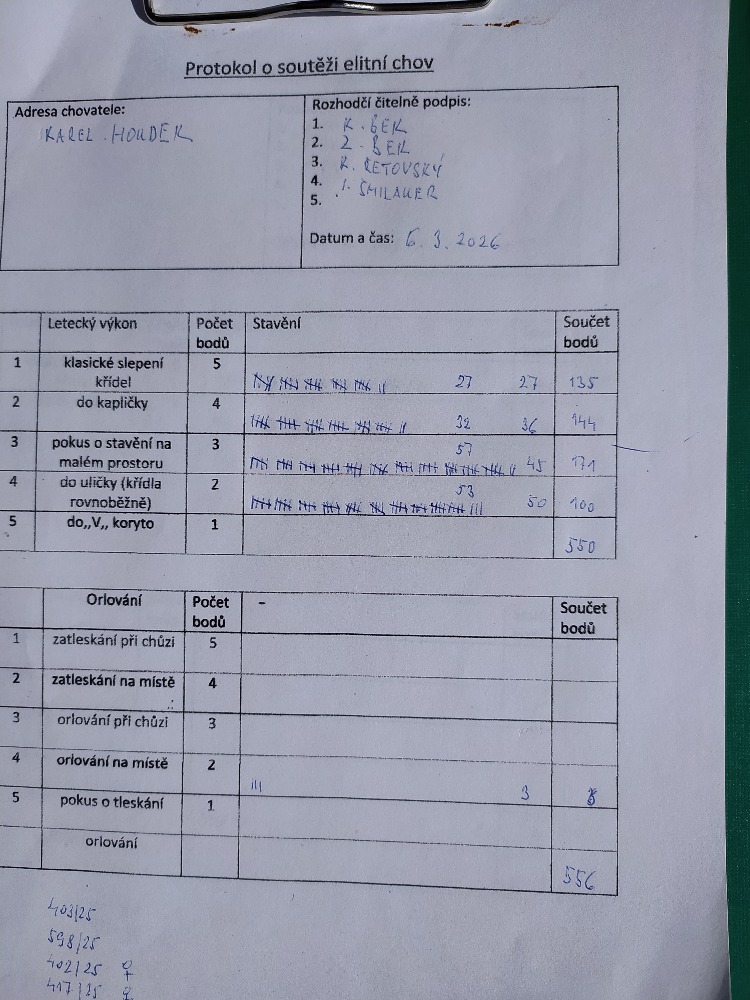 Protokol o soutěži elitní chov
Adresa chovatele:
KAREL HOUDEK
Rozhodčí čitelně podpis:
1. K. BEK
2. Z. BEK
3. K. ŘETOVSKÝ
4. ŠMILAUER
5.
Datum a čas: 6. 3. 2026
Letecký výkon Počet bodů Stavění Součet bodů
1 klasické slepení křídel 5 27 27 135
2 do kapličky 4 32 36 144
3 pokus o stavění na malém prostoru 3 57 45 171
4 do uličky (křídla rovnoběžně) 2 53 50 100
5 do,,V,, koryto 1
550
Orlování Počet bodů - Součet bodů
1 zatleskání při chůzi 5
2 zatleskání na místě 4
3 orlování při chůzi 3
4 orlování na místě 2 3
5 pokus o tleskání 1
orlování
556
403/25
598/25
402/25 ♀
417/25 ♀